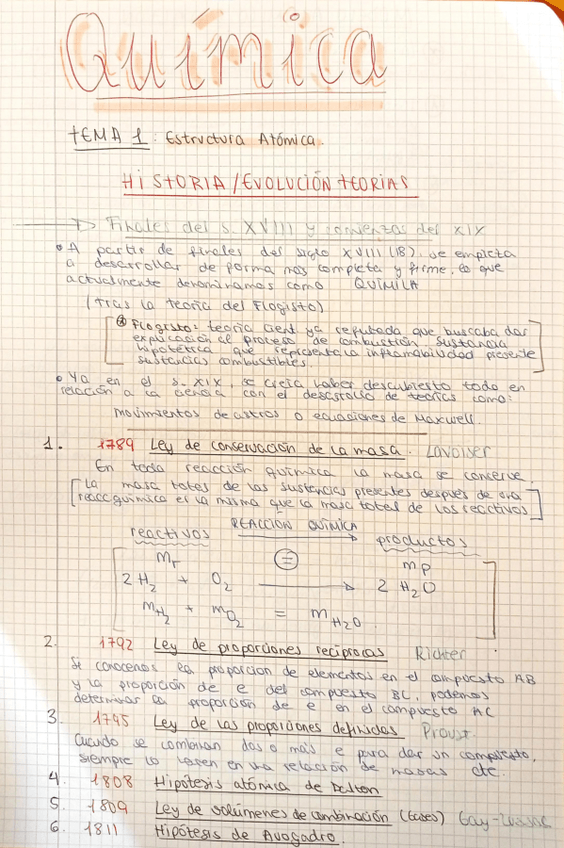 Química
TEMA 1: Estructura Atómica.
HISTORIA/EVOLUCIÓN TEORIAS
Finales del s. XVIII y comienzos del XIX
• A partir de finales del siglo XVIII (18), se empieza
a desarrollar de forma más completa y firme, lo que
actualmente denominamos como QUÍMICA
(tras la teoría del Flogisto)
Flogisto: teoría cient. ya refutada que buscaba dar
explicación al proceso de combustión. Sustancia
hipotética que representa la inflamabilidad presente
sustancias combustibles.
• Ya en el s. XIX, se creía haber descubierto todo en
relación a la ciencia con el desarrollo de teorías como:
movimientos de astros o ecuaciones de Maxwell.
1. 1789 Ley de conservación de la masa. Lavoiser
En toda reacción química la masa se conserva.
[La masa total de las sustancias presentes después de una
reacc química es la misma que la masa total de los reactivos]
reactivos REACCIÓN QUÍMICA productos
mr = mp
2 H₂ + O₂ → 2 H₂O
mH₂ + mO₂ = mH₂O
2. 1792 Ley de proporciones recíprocas Richter
Si conocemos la proporción de elementos en el compuesto AB
y la proporción de e del compuesto BC, podemos
determinar la proporción de e en el compuesto AC
3. 1795 Ley de las proporciones definidas Proust
Cuando se combinan dos o más e para dar un compuesto,
siempre lo hacen en una relación de masas cte.
4. 1808 Hipótesis atómica de Dalton
5. 1809 Ley de volúmenes de combinación (Gases) Gay-Lussac
6. 1811 Hipótesis de Avogadro.